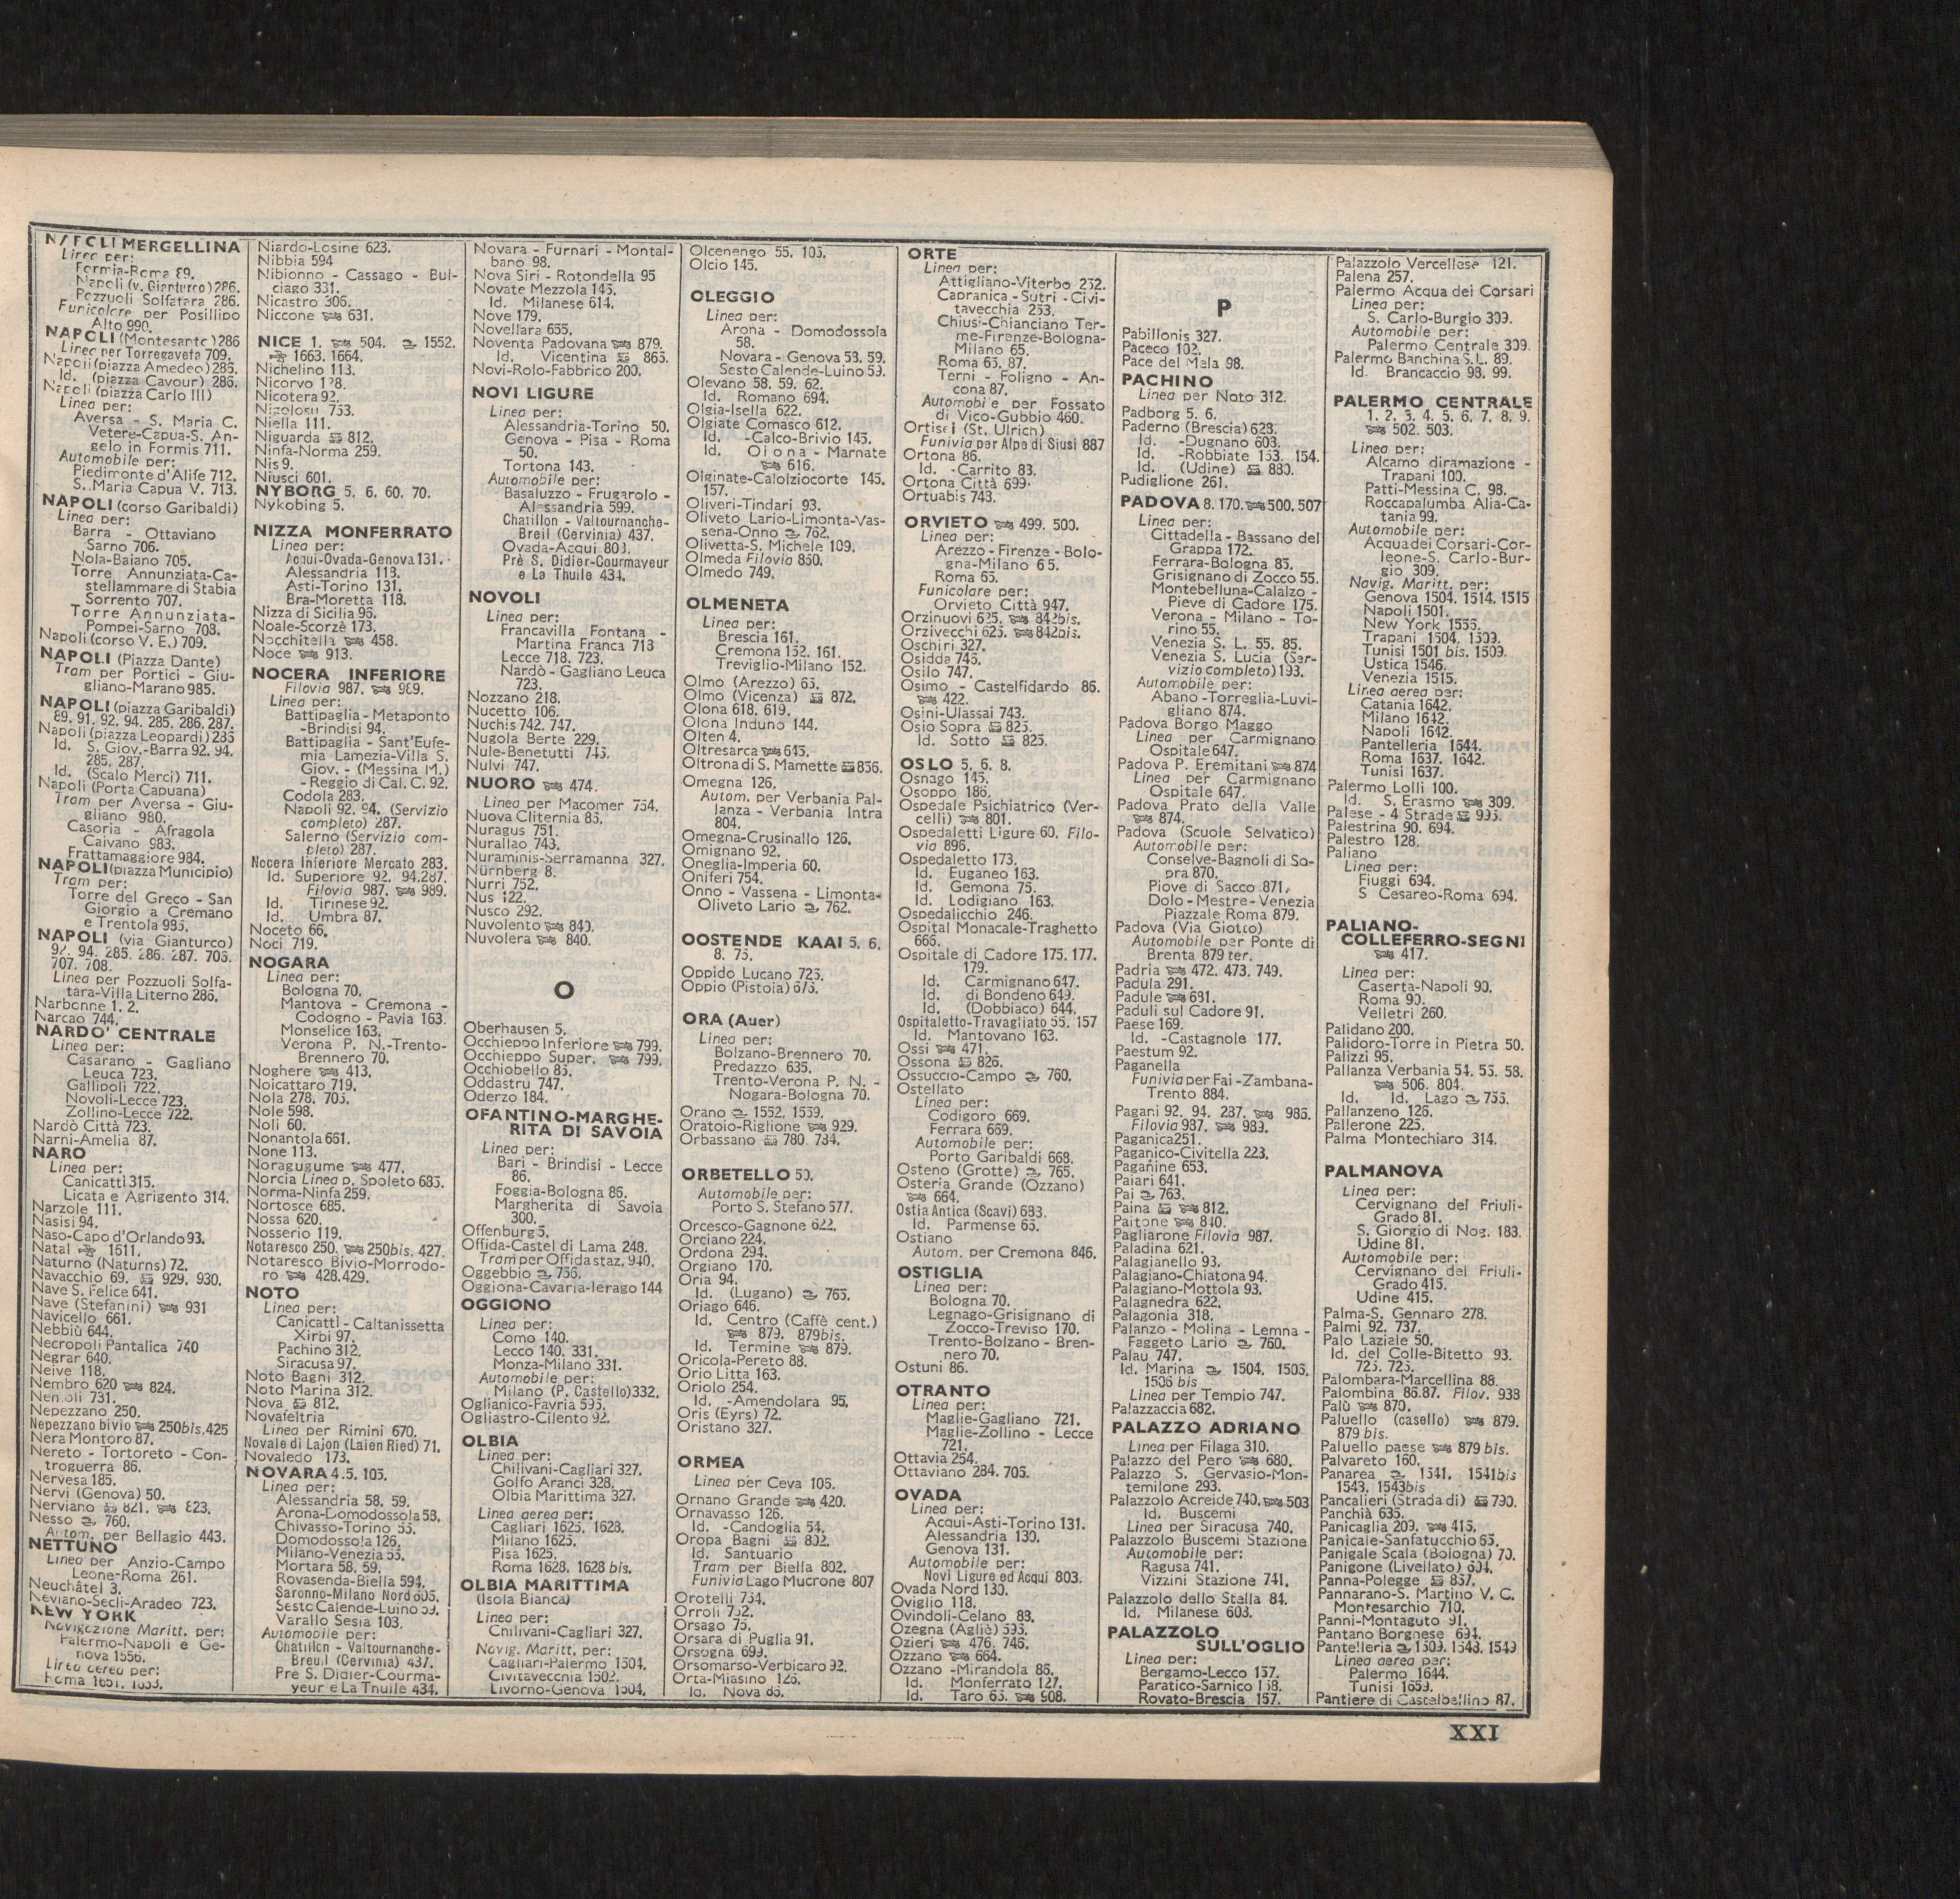 NAPOLI MERGELLINA
Linee per:
Formia-Roma 89.
Napoli (v. Gianturco) 286.
Pozzuoli Solfatara 286.
Funicolare per Posillipo
Alto 990.
NAPOLI (Montesanto) 286
Linee per Torregaveta 709.
Napoli (piazza Amedeo) 286.
Id. (piazza Cavour) 286.
Napoli (piazza Carlo III)
Linea per:
Aversa - S. Maria C.
Vetere-Capua-S. An-
gelo in Formis 711.
Automobile per:
Piedimonte d'Alife 712.
S. Maria Capua V. 713.
NAPOLI (corso Garibaldi)
Linea per:
Barra - Ottaviano
Sarno 706.
Nola-Baiano 705.
Torre Annunziata-Ca-
stellammare di Stabia
Sorrento 707.
Torre Annunziata-
Pompei-Sarno 708.
Napoli (corso V. E.) 709.
NAPOLI (Piazza Dante)
Tram per Portici - Giu-
gliano-Marano 985.
NAPOLI (piazza Garibaldi)
89, 91. 92. 94. 285. 286. 287.
Napoli (piazza Leopardi) 286
Id. S. Giov.-Barra 92. 94.
285. 287.
Id. (Scalo Merci) 711.
Napoli (Porta Capuana)
Tram per Aversa - Giu-
gliano 980.
Casoria - Afragola
Caivano 983.
Frattamaggiore 984.
NAPOLI (piazza Municipio)
Tram per:
Torre del Greco - San
Giorgio a Cremano
e Trentola 985.
NAPOLI (via Gianturco)
92. 94. 285. 286. 287. 705.
707. 708.
Linea per Pozzuoli Solfa-
tara-Villa Literno 286.
Narbonne 1. 2.
Narcao 744.
NARDO' CENTRALE
Linea per:
Casarano - Gagliano
Leuca 723.
Gallipoli 722.
Novoli-Lecce 723.
Zollino-Lecce 722.
Nardò Città 723.
Narni-Amelia 87.
NARO
Linea per:
Canicatti 315.
Licata e Agrigento 314.
Narzole 111.
Nasisi 94.
Naso-Capo d'Orlando 93.
Natal 1611.
Naturno (Naturns) 72.
Navacchio 69. 929. 930.
Nave S. Felice 641.
Nave (Stefanini) 931
Navicello 661.
Nebbiù 644.
Necropoli Pantalica 740
Negrar 640.
Neive 118.
Nembro 620 824.
Nemoli 731.
Nepezzano 250.
Nepezzano bivio 250bis. 425
Nera Montoro 87.
Nereto - Tortoreto - Con-
troguerra 86.
Nervesa 185.
Nervi (Genova) 50.
Nerviano 821. 823.
Nesso 760.
Autom. per Bellagio 443.
NETTUNO
Linea per Anzio-Campo
Leone-Roma 261.
Neuchâtel 3.
Neviano-Seclì-Aradeo 723.
NEW YORK
Navigazione Maritt. per:
Palermo-Napoli e Ge-
nova 1556.
Linea aerea per:
Roma 1651. 1653.
Niardo-Losine 623.
Nibbia 594
Nibionno - Cassago - Bul-
ciago 331.
Nicastro 306.
Niccone 631.
NICE 1. 504. 1552.
1663. 1664.
Nichelino 113.
Nicorvo 128.
Nicotera 92.
Nicolosi 753.
Niella 111.
Niguarda 812.
Ninfa-Norma 259.
Nis 9.
Niusci 601.
NYBORG 5. 6. 60. 70.
Nykobing 5.
NIZZA MONFERRATO
Linea per:
Acqui-Ovada-Genova 131.
Alessandria 118.
Asti-Torino 131.
Bra-Moretta 118.
Nizza di Sicilia 96.
Noale-Scorzè 173.
Nocchitella 458.
Noce 913.
NOCERA INFERIORE
Filovia 987. 989.
Linea per:
Battipaglia - Metaponto
-Brindisi 94.
Battipaglia - Sant'Eufe-
mia Lamezia-Villa S.
Giov. - (Messina M.)
- Reggio di Cal. C. 92.
Codola 283.
Napoli 92. 94. (Servizio
completo) 287.
Salerno (Servizio com-
pleto) 287.
Nocera Inferiore Mercato 283.
Id. Superiore 92. 94. 287.
Filovia 987. 989.
Id. Tirinese 92.
Id. Umbra 87.
Noceto 66.
Noci 719.
NOGARA
Linea per:
Bologna 70.
Mantova - Cremona -
Codogno - Pavia 163.
Monselice 163.
Verona P. N.-Trento-
Brennero 70.
Noghere 413.
Noicattaro 719.
Nola 278. 705.
Nole 598.
Noli 60.
Nonantola 661.
None 113.
Noragugume 477.
Norcia Linea p. Spoleto 685.
Norma-Ninfa 259.
Nortosce 685.
Nossa 620.
Nosserio 119.
Notaresco 250. 250bis. 427.
Notaresco Bivio-Morrodo-
ro 428. 429.
NOTO
Linea per:
Canicattì - Caltanissetta
Xirbi 97.
Pachino 312.
Siracusa 97.
Noto Bagni 312.
Noto Marina 312.
Nova 812.
Novafeltria
Linea per Rimini 670.
Novale di Lajon (Laien Ried) 71.
Novaledo 173.
NOVARA 4. 5. 105.
Linea per:
Alessandria 58. 59.
Arona-Domodossola 58.
Chivasso-Torino 55.
Domodossola 126.
Milano-Venezia 55.
Mortara 58. 59.
Rovasenda-Biella 594.
Saronno-Milano Nord 605.
Sesto Calende-Luino 59.
Varallo Sesia 103.
Automobile per:
Chatillon - Valtournanche-
Breuil (Cervinia) 437.
Pré S. Didier-Courma-
yeur e La Thuile 434.
Novara - Furnari - Montal-
bano 98.
Nova Siri - Rotondella 95
Novate Mezzola 145.
Id. Milanese 614.
Nove 179.
Novellara 655.
Noventa Padovana 879.
Id. Vicentina 865.
Novi-Rolo-Fabbrico 200.
NOVI LIGURE
Linea per:
Alessandria-Torino 50.
Genova - Pisa - Roma
50.
Tortona 143.
Automobile per:
Basaluzzo - Frugarolo -
Alessandria 599.
Chatillon - Valtournanche-
Breil (Cervinia) 437.
Ovada-Acqui 803.
Pré S. Didier-Courmayeur
e La Thuile 434.
NOVOLI
Linea per:
Francavilla Fontana -
Martina Franca 713
Lecce 718. 723.
Nardò - Gagliano Leuca
723.
Nozzano 218.
Nucetto 106.
Nuchis 742. 747.
Nugola Berte 229.
Nule-Benetutti 745.
Nulvi 747.
NUORO 474.
Linea per Macomer 754.
Nuova Cliternia 85.
Nuragus 751.
Nurallao 743.
Nuraminis-Serramanna 327.
Nürnberg 8.
Nurri 752.
Nus 122.
Nusco 292.
Nuvolento 840.
Nuvolera 840.
O
Oberhausen 5.
Occhieppo Inferiore 799.
Occhieppo Super. 799.
Occhiobello 85.
Oddastru 747.
Oderzo 184.
OFANTINO-MARGHE-
RITA DI SAVOIA
Linea per:
Bari - Brindisi - Lecce
86.
Foggia-Bologna 86.
Margherita di Savoia
300.
Offenburg 5.
Offida-Castel di Lama 248.
Tram per Offida staz. 940.
Oggebbio 756.
Oggiona-Cavaria-Ierago 144
OGGIONO
Linea per:
Como 140.
Lecco 140. 331.
Monza-Milano 331.
Automobile per:
Milano (P. Castello) 332.
Oglianico-Favria 595.
Ogliastro-Cilento 92.
OLBIA
Linea per:
Chilivani-Cagliari 327.
Golfo Aranci 328.
Olbia Marittima 327.
Linea aerea per:
Cagliari 1625. 1628.
Milano 1625.
Pisa 1625.
Roma 1628. 1628 bis.
OLBIA MARITTIMA
(Isola Bianca)
Linea per:
Chilivani-Cagliari 327.
Navig. Maritt. per:
Cagliari-Palermo 1504.
Civitavecchia 1502.
Livorno-Genova 1504.
Olcenengo 55. 105.
Olcio 145.
OLEGGIO
Linea per:
Arona - Domodossola
58.
Novara - Genova 58. 59.
Sesto Calende-Luino 59.
Olevano 58. 59. 62.
Id. Romano 694.
Olgia-Isella 622.
Olgiate Comasco 612.
Id. -Calco-Brivio 145.
Id. Olona - Marnate
616.
Olginate-Calolziocorte 145.
157.
Oliveri-Tindari 93.
Oliveto Lario-Limonta-Vas-
sena-Onno 762.
Olivetta-S. Michele 109.
Olmeda Filovia 850.
Olmedo 749.
OLMENETA
Linea per:
Brescia 161.
Cremona 152. 161.
Treviglio-Milano 152.
Olmo (Arezzo) 65.
Olmo (Vicenza) 872.
Olona 618. 619.
Olona Induno 144.
Olten 4.
Oltresarca 645.
Oltrona di S. Mamette 856.
Omegna 126.
Autom. per Verbania Pal-
lanza - Verbania Intra
804.
Omegna-Crusinallo 126.
Omignano 92.
Oneglia-Imperia 60.
Oniferi 754.
Onno - Vassena - Limonta-
Oliveto Lario 762.
OOSTENDE KAAI 5. 6.
8. 75.
Oppido Lucano 725.
Oppio (Pistoia) 675.
ORA (Auer)
Linea per:
Bolzano-Brennero 70.
Predazzo 635.
Trento-Verona P. N. -
Nogara-Bologna 70.
Orano 1552. 1559.
Oratoio-Riglione 929.
Orbassano 780. 784.
ORBETELLO 50.
Automobile per:
Porto S. Stefano 577.
Orcesco-Gagnone 622.
Orciano 224.
Ordona 294.
Orgiano 170.
Oria 94.
Id. (Lugano) 765.
Oriago 646.
Id. Centro (Caffè cent.)
879. 879bis.
Id. Termine 879.
Oricola-Pereto 88.
Orio Litta 163.
Oriolo 254.
Id. -Amendolara 95.
Oris (Eyrs) 72.
Oristano 327.
ORMEA
Linea per Ceva 106.
Ornano Grande 420.
Ornavasso 126.
Id. -Candoglia 54.
Oropa Bagni 802.
Id. Santuario
Tram per Biella 802.
Funivia Lago Mucrone 807
Orotelli 754.
Orroli 752.
Orsago 75.
Orsara di Puglia 91.
Orsogna 699.
Orsomarso-Verbicaro 92.
Orta-Miasino 126.
Id. Nova 86.
ORTE
Linea per:
Attigliano-Viterbo 252.
Capranica - Sutri - Civi-
tavecchia 253.
Chiusi-Chianciano Ter-
me-Firenze-Bologna-
Milano 65.
Roma 65. 87.
Terni - Foligno - An-
cona 87.
Automobile per Fossato
di Vico-Gubbio 460.
Ortisei (St. Ulrich)
Funivia per Alpe di Siusi 887
Ortona 86.
Id. -Carrito 83.
Ortona Città 699.
Ortuabis 743.
ORVIETO 499. 500.
Linea per:
Arezzo - Firenze - Bolo-
gna-Milano 65.
Roma 65.
Funicolare per:
Orvieto Città 947.
Orzinuovi 625. 842bis.
Orzivecchi 625. 842bis.
Oschiri 327.
Osidda 745.
Osilo 747.
Osimo - Castelfidardo 86.
422.
Osini-Ulassai 743.
Osio Sopra 825.
Id. Sotto 825.
OSLO 5. 6. 8.
Osnago 145.
Osoppo 186.
Ospedale Psichiatrico (Ver-
celli) 801.
Ospedaletti Ligure 60. Filo-
via 896.
Ospedaletto 173.
Id. Euganeo 163.
Id. Gemona 75.
Id. Lodigiano 163.
Ospedalicchio 246.
Ospital Monacale-Traghetto
666.
Ospitale di Cadore 175. 177.
179.
Id. Carmignano 647.
Id. di Bondeno 649.
Id. (Dobbiaco) 644.
Ospitaletto-Travagliato 55. 157
Id. Mantovano 163.
Ossi 471.
Ossona 826.
Ossuccio-Campo 760.
Ostellato
Linea per:
Codigoro 669.
Ferrara 669.
Automobile per:
Porto Garibaldi 668.
Osteno (Grotte) 765.
Osteria Grande (Ozzano)
664.
Ostia Antica (Scavi) 683.
Id. Parmense 65.
Ostiano
Autom. per Cremona 846.
OSTIGLIA
Linea per:
Bologna 70.
Legnago-Grisignano di
Zocco-Treviso 170.
Trento-Bolzano - Bren-
nero 70.
Ostuni 86.
OTRANTO
Linea per:
Maglie-Gagliano 721.
Maglie-Zollino - Lecce
721.
Ottavia 254.
Ottaviano 284. 705.
OVADA
Linea per:
Acqui-Asti-Torino 131.
Alessandria 130.
Genova 131.
Automobile per:
Novi Ligure ed Acqui 803.
Ovada Nord 130.
Oviglio 118.
Ovindoli-Celano 83.
Ozegna (Agliè) 595.
Ozieri 476. 746.
Ozzano 664.
Ozzano -Mirandola 86.
Id. Monferrato 127.
Id. Taro 65. 908.
P
Pabillonis 327.
Paceco 102.
Pace del Mela 98.
PACHINO
Linea per Noto 312.
Padborg 5. 6.
Paderno (Brescia) 623.
Id. -Dugnano 603.
Id. -Robbiate 153. 154.
Id. (Udine) 880.
Pudiglione 261.
PADOVA 8. 170. 500. 507
Linea per:
Cittadella - Bassano del
Grappa 172.
Ferrara-Bologna 85.
Grisignano di Zocco 55.
Montebelluna-Calalzo -
Pieve di Cadore 175.
Verona - Milano - To-
rino 55.
Venezia S. L. 55. 85.
Venezia S. Lucia (Ser-
vizio completo) 193.
Automobile per:
Abano -Torreglia-Luvi-
gliano 874.
Padova Borgo Maggo
Linea per Carmignano
Ospitale 647.
Padova P. Eremitani 874
Linea per Carmignano
Ospitale 647.
Padova Prato della Valle
874.
Padova (Scuole Selvatico)
Automobile per:
Conselve-Bagnoli di So-
pra 870.
Piove di Sacco 871.
Dolo - Mestre - Venezia
Piazzale Roma 879.
Padova (Via Giotto)
Automobile per Ponte di
Brenta 879 ter.
Padria 472. 473. 749.
Padula 291.
Padule 631.
Paduli sul Cadore 91.
Paese 169.
Id. -Castagnole 177.
Paestum 92.
Paganella
Funivia per Fai -Zambana-
Trento 884.
Pagani 92. 94. 287. 986.
Filovia 987. 989.
Paganica 251.
Paganico-Civitella 223.
Pagañine 653.
Paiari 641.
Pai 763.
Paina 812.
Paitone 840.
Pagliarone Filovia 987.
Paladina 621.
Palagianello 93.
Palagiano-Chiatona 94.
Palagiano-Mottola 93.
Palagnedra 622.
Palagonia 318.
Palanzo - Molina - Lemna -
Faggeto Lario 760.
Palau 747.
Id. Marina 1504. 1505.
1506 bis
Linea per Tempio 747.
Palazzaccia 682.
PALAZZO ADRIANO
Linea per Filaga 310.
Palazzo del Pero 680.
Palazzo S. Gervasio-Mon-
temilone 293.
Palazzolo Acreide 740. 503
Id. Buscemi
Linea per Siracusa 740.
Palazzolo Buscemi Stazione
Automobile per:
Ragusa 741.
Vizzini Stazione 741.
Palazzolo dello Stella 84.
Id. Milanese 603.
PALAZZOLO
SULL'OGLIO
Linea per:
Bergamo-Lecco 157.
Paratico-Sarnico 158.
Rovato-Brescia 157.
Palazzolo Vercellese 121.
Palena 257.
Palermo Acqua dei Corsari
Linea per:
S. Carlo-Burgio 309.
Automobile per:
Palermo Centrale 309.
Palermo Banchina S.L. 89.
Id. Brancaccio 98. 99.
PALERMO CENTRALE
1. 2. 3. 4. 5. 6. 7. 8. 9.
502. 503.
Linea per:
Alcamo diramazione -
Trapani 100.
Patti-Messina C. 98.
Roccapalumba Alia-Ca-
tania 99.
Automobile per:
Acqua dei Corsari-Cor-
leone-S. Carlo-Bur-
gio 309.
Navig. Maritt. per:
Genova 1504. 1514. 1515
Napoli 1501.
New York 1555.
Trapani 1504. 1509.
Tunisi 1501 bis. 1509.
Ustica 1546.
Venezia 1515.
Linea aerea per:
Catania 1642.
Milano 1642.
Napoli 1642.
Pantelleria 1644.
Roma 1637. 1642.
Tunisi 1637.
Palermo Lolli 100.
Id. S. Erasmo 309.
Palese - 4 Strade 995.
Palestrina 90. 694.
Palestro 128.
Paliano
Linea per:
Fiuggi 694.
S Cesareo-Roma 694.
PALIANO-
COLLEFERRO-SEGNI
417.
Linea per:
Caserta-Napoli 90.
Roma 90.
Velletri 260.
Palidano 200.
Palidoro-Torre in Pietra 50.
Palizzi 95.
Pallanza Verbania 54. 55. 58.
506. 804.
Id. Id. Lago 755.
Pallanzeno 126.
Pallerone 225.
Palma Montechiaro 314.
PALMANOVA
Linea per:
Cervignano del Friuli-
Grado 81.
S. Giorgio di Nog. 183.
Udine 81.
Automobile per:
Cervignano del Friuli-
Grado 415.
Udine 415.
Palma-S. Gennaro 278.
Palmi 92. 737.
Palo Laziale 50.
Id. del Colle-Bitetto 93.
725. 725.
Palombara-Marcellina 88.
Palombina 86.87. Filov. 938
Palù 870.
Paluello (casello) 879.
879 bis.
Paluello paese 879 bis.
Palvareto 160.
Panarea 1541. 1541bis
1543. 1543bis
Pancalieri (Strada di) 790.
Panchià 635.
Panicaglia 209. 415.
Panicale-Sanfatucchio 65.
Panigale Scala (Bologna) 70.
Panigone (Livellato) 604.
Panna-Polegge 857.
Pannarano-S. Martino V. C.
Montesarchio 710.
Panni-Montaguto 91.
Pantano Borghese 694.
Pantelleria 1509. 1548. 1549
Linea aerea per:
Palermo 1644.
Tunisi 1659.
Pantiere di Castelbellino 87.
XXI